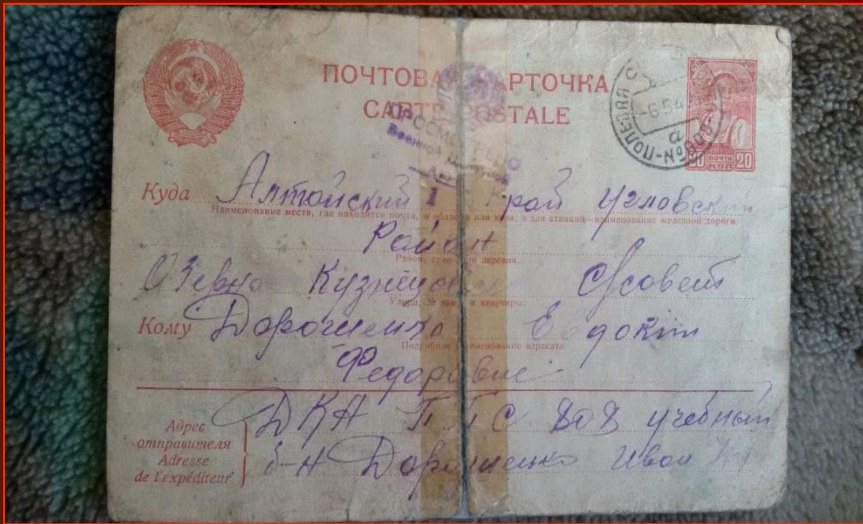 ПОЧТОВАЯ КАРТОЧКА
CARTE POSTALE
ПРОСМОТРЕНО
Военной
1
20 ПОЧТА 20
КОП
Куда Алтайский Край Угловский
Наименование места, где находится почта, и области или края, а для станций—наименование железной дороги
Район
Район, село или деревня
Кузнецовск С/совет
Улица, № дома и квартиры
Кому Дорошенко Евдокии
Подробное наименование адресата
Федоровне
Адрес отправителя
Adresse de l'expéditeur
ДКА ППС 808 учебный
б-н Дорошенко Иван